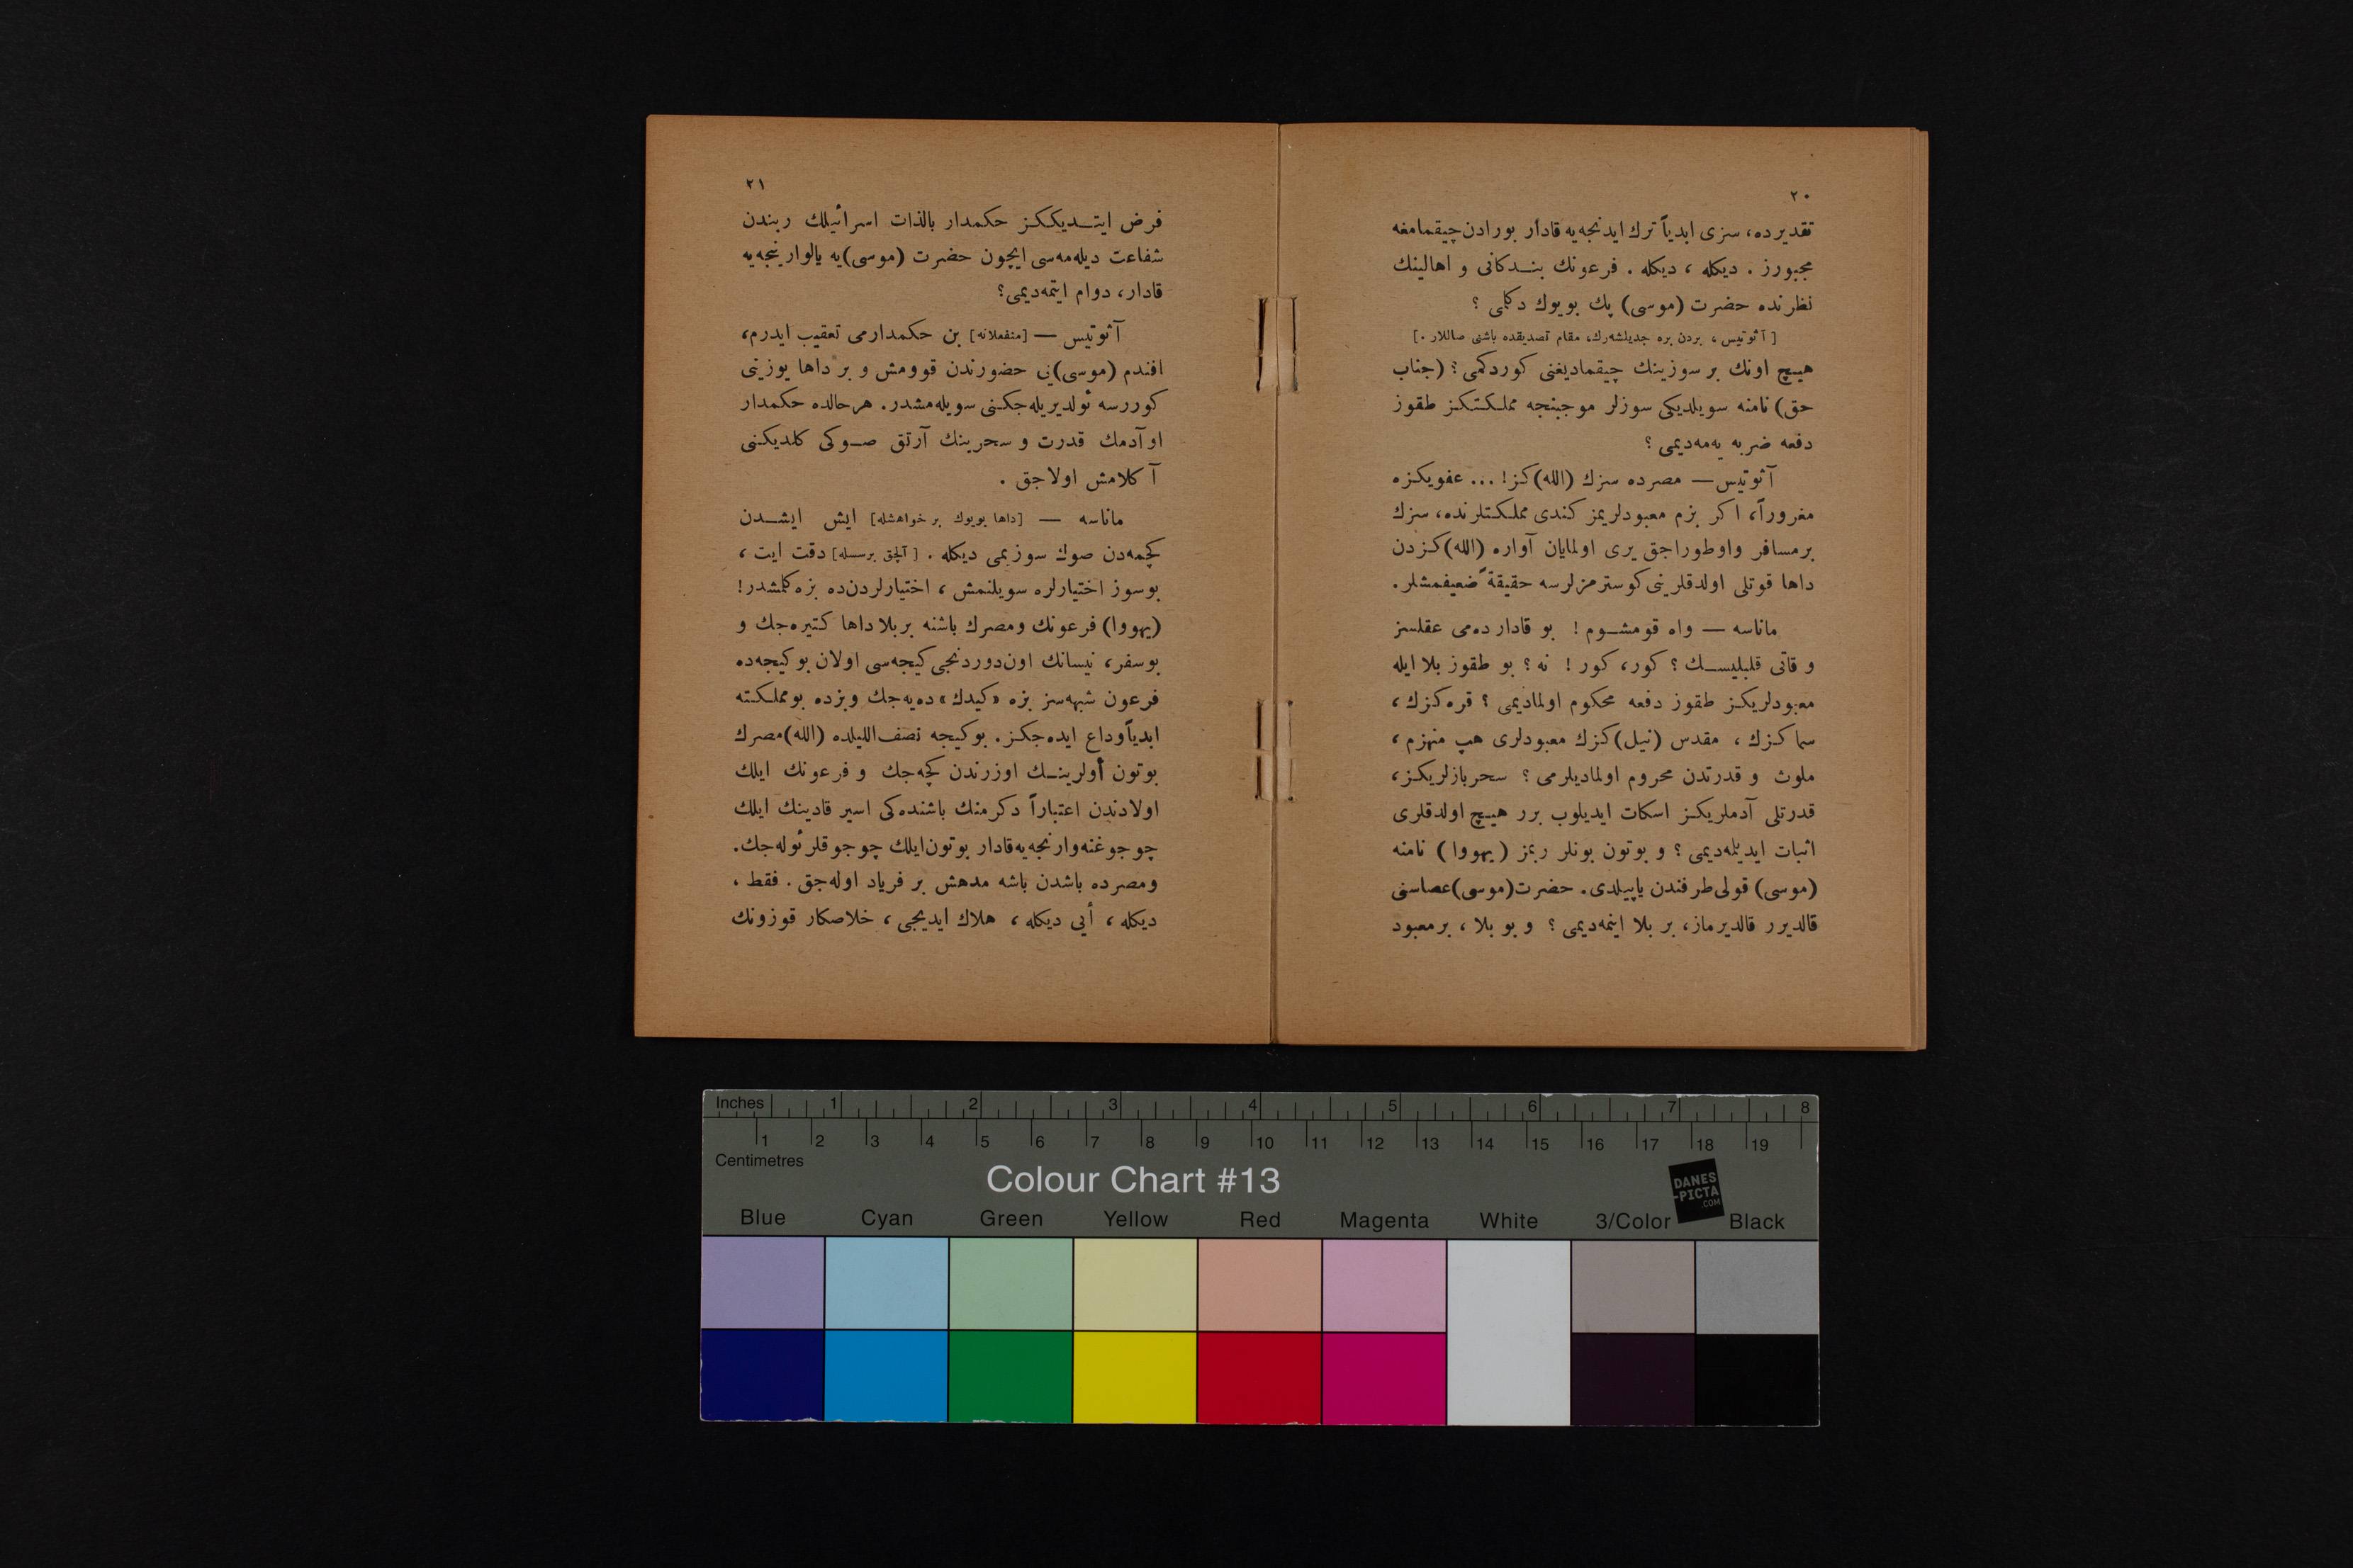 ٢٠
تقديرده، سزى ابدياً ترك ايدنجه‌يه قادار بورادن چيقمامغه
مجبورز . ديكله ، ديكله . فرعونك بنــدكانى و اهالينك
نظرنده حضرت (موسى) پك بويوك دكلمى ؟
[ آثوتيس ، بردن بره جديلشه‌رك، مقام تصديقده باشنى صاللار .]
هيـچ اونك بر سوزينك چيقماديغنى كوردكمى ؟ (جناب
حق) نامنه سويلديكى سوزلر موجبنجه مملـكـتكز طقوز
دفعه ضربه يه‌مه‌ديمى ؟
آثوتيس — مصرده سزك (الله)كز! ... عفويكزه
مغروراً، اكر بزم معبودلريمز كندى مملـكـتلرنده، سزك
برمسافر واوطوراجق يرى اولمايان آواره (الله)كـزدن
داها قوتلى اولدقلرينى كوسترمزلرسه حقيقةً ضعيفمشلر.
ماناسه — واه قومشــوم ! بو قادار ده‌مى عقلسز
و قاتى قلبليســك ؟ كور، كور ! نه ؟ بو طقوز بلا ايله
معبودلريكـز طقوز دفعه محكوم اولماديمى ؟ قره‌كزك ،
سماكـزك ، مقدس (نيل)كزك معبودلرى هپ منهزم ،
ملوث و قدرتدن محروم اولماديلرمى ؟ سحربازلريكـز،
قدرتلى آدملريكـز اسكات ايديلوب برر هيـچ اولدقلرى
اثبات ايديله‌ديمى ؟ و بوتون بونلر ربمز ( يهووا ) نامنه
(موسى) قولى‌طرفندن ياپيلدى. حضرت(موسى)عصاسنى
قالديرر قالديرماز، بر بلا اينمه‌ديمى ؟ و بو بلا ، برمعبود
٢١
فرض ايتــديكـكـز حكمدار بالذات اسرائيلك ربندن
شفاعت ديله‌مه‌سى ايچون حضرت (موسى)يه يالوارينجه‌يه
قادار، دوام ايتمه‌ديمى؟
آثوتيس — [منفعلانه] بن حكمدارمى تعقيب ايدرم،
افندم (موسى)يى حضورندن قوومش و بر داها يوزينى
كوررسه ئولديريله‌جكـنى سويله‌مشدر. هرحالده حكمدار
اوآدمك قدرت و سحرينك آرتق صــوكى كلديكـنى
آ كلامش اولاجق .
ماناسه — [داها بويوك بر خواهشله] ايش ايشــدن
كچمه‌دن صوك سوزيمى ديكله . [آلچق برسسله] دقت ايت ،
بوسوز اختيارلره سويلنمش ، اختيارلردن‌ده بزه كلمشدر!
(يهووا) فرعونك ومصرك باشنه بربلا داها كـتيره‌جك و
بوسفر، نيسانك اون‌دوردنجى كيجه‌سى اولان بوكيجه‌ده
فرعون شبهه‌سز بزه «كيدك» ده‌يه‌جك وبزده بومملـكـته
ابدياًوداع ايده‌جكـز. بوكيجه نصف‌الليلده (الله)مصرك
بوتون أولرينــك اوزرندن كچه‌جك و فرعونك ايلك
اولادندن اعتباراً دكرمنك باشنده‌كى اسير قادينك ايلك
چوجوغنه‌وارنجه‌يه‌قادار بوتون‌ايلك چوجوقلر ئوله‌جك.
ومصرده باشدن باشه مدهش بر فرياد اوله‌جق . فقط ،
ديكله ، أيى ديكله ، هلاك ايديجى ، خلاصكار قوزونك
Inches 1 2 3 4 5 6 7 8
1 2 3 4 5 6 7 8 9 10 11 12 13 14 15 16 17 18 19
Centimetres
Colour Chart #13
DANES
-PICTA
.COM
Blue Cyan Green Yellow Red Magenta White 3/Color Black